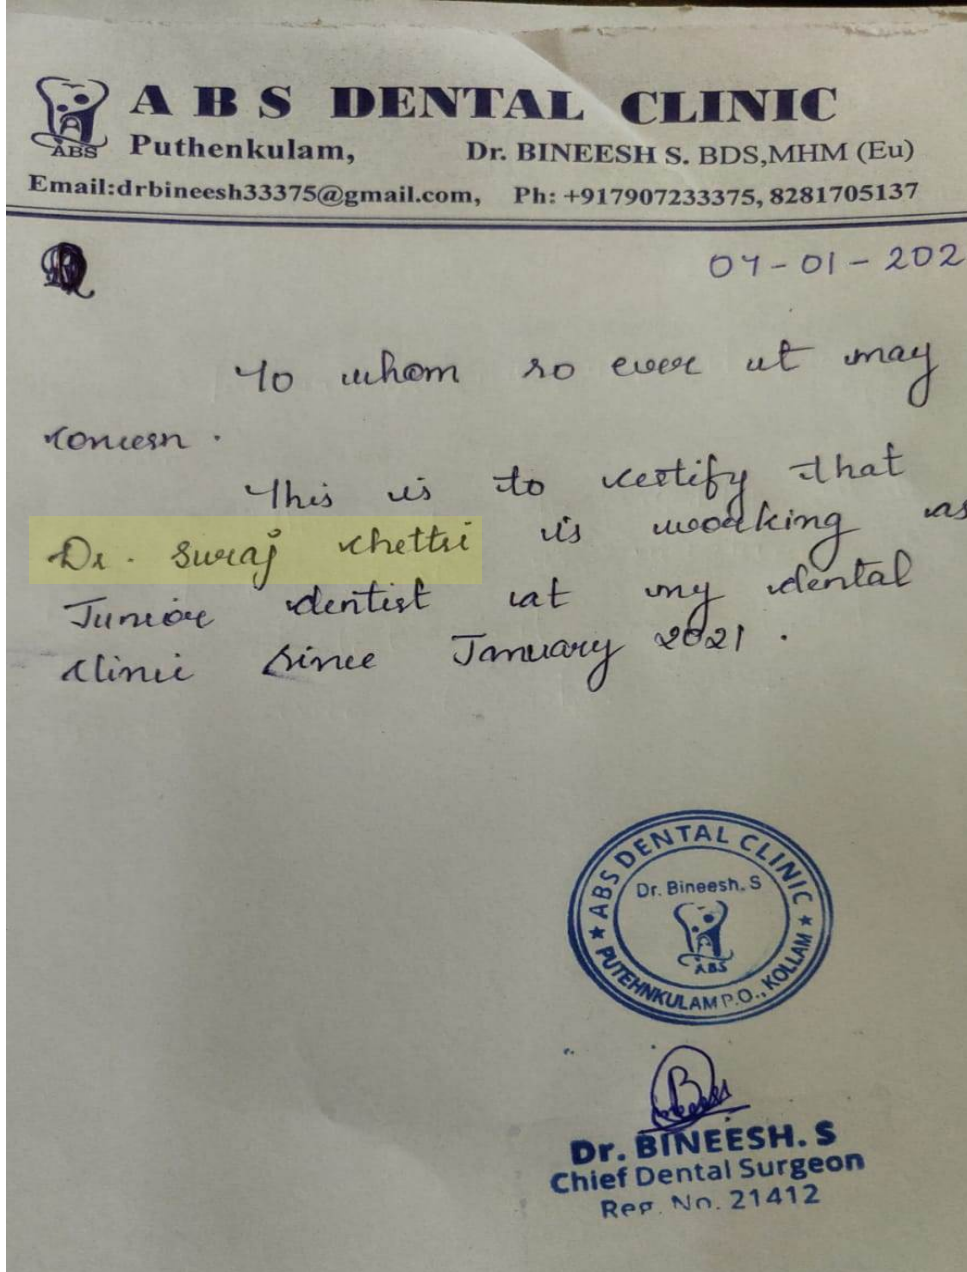 ABS DENTAL CLINIC
ABS
Puthenkulam, Dr. BINEESH S. BDS,MHM (Eu)
Email:drbineesh33375@gmail.com, Ph: +917907233375, 8281705137
04-01-202
To whom so ever it may
concern.
This is to certify that
Dr. Suraj chettri is working as
Junior dentist at my dental
clinic since January 2021.
ABS DENTAL CLINIC
Dr. Bineesh. S
ABS
PUTEHNKULAM P.O., KOLLAM
Dr. BINEESH. S
Chief Dental Surgeon
Reg. No. 21412